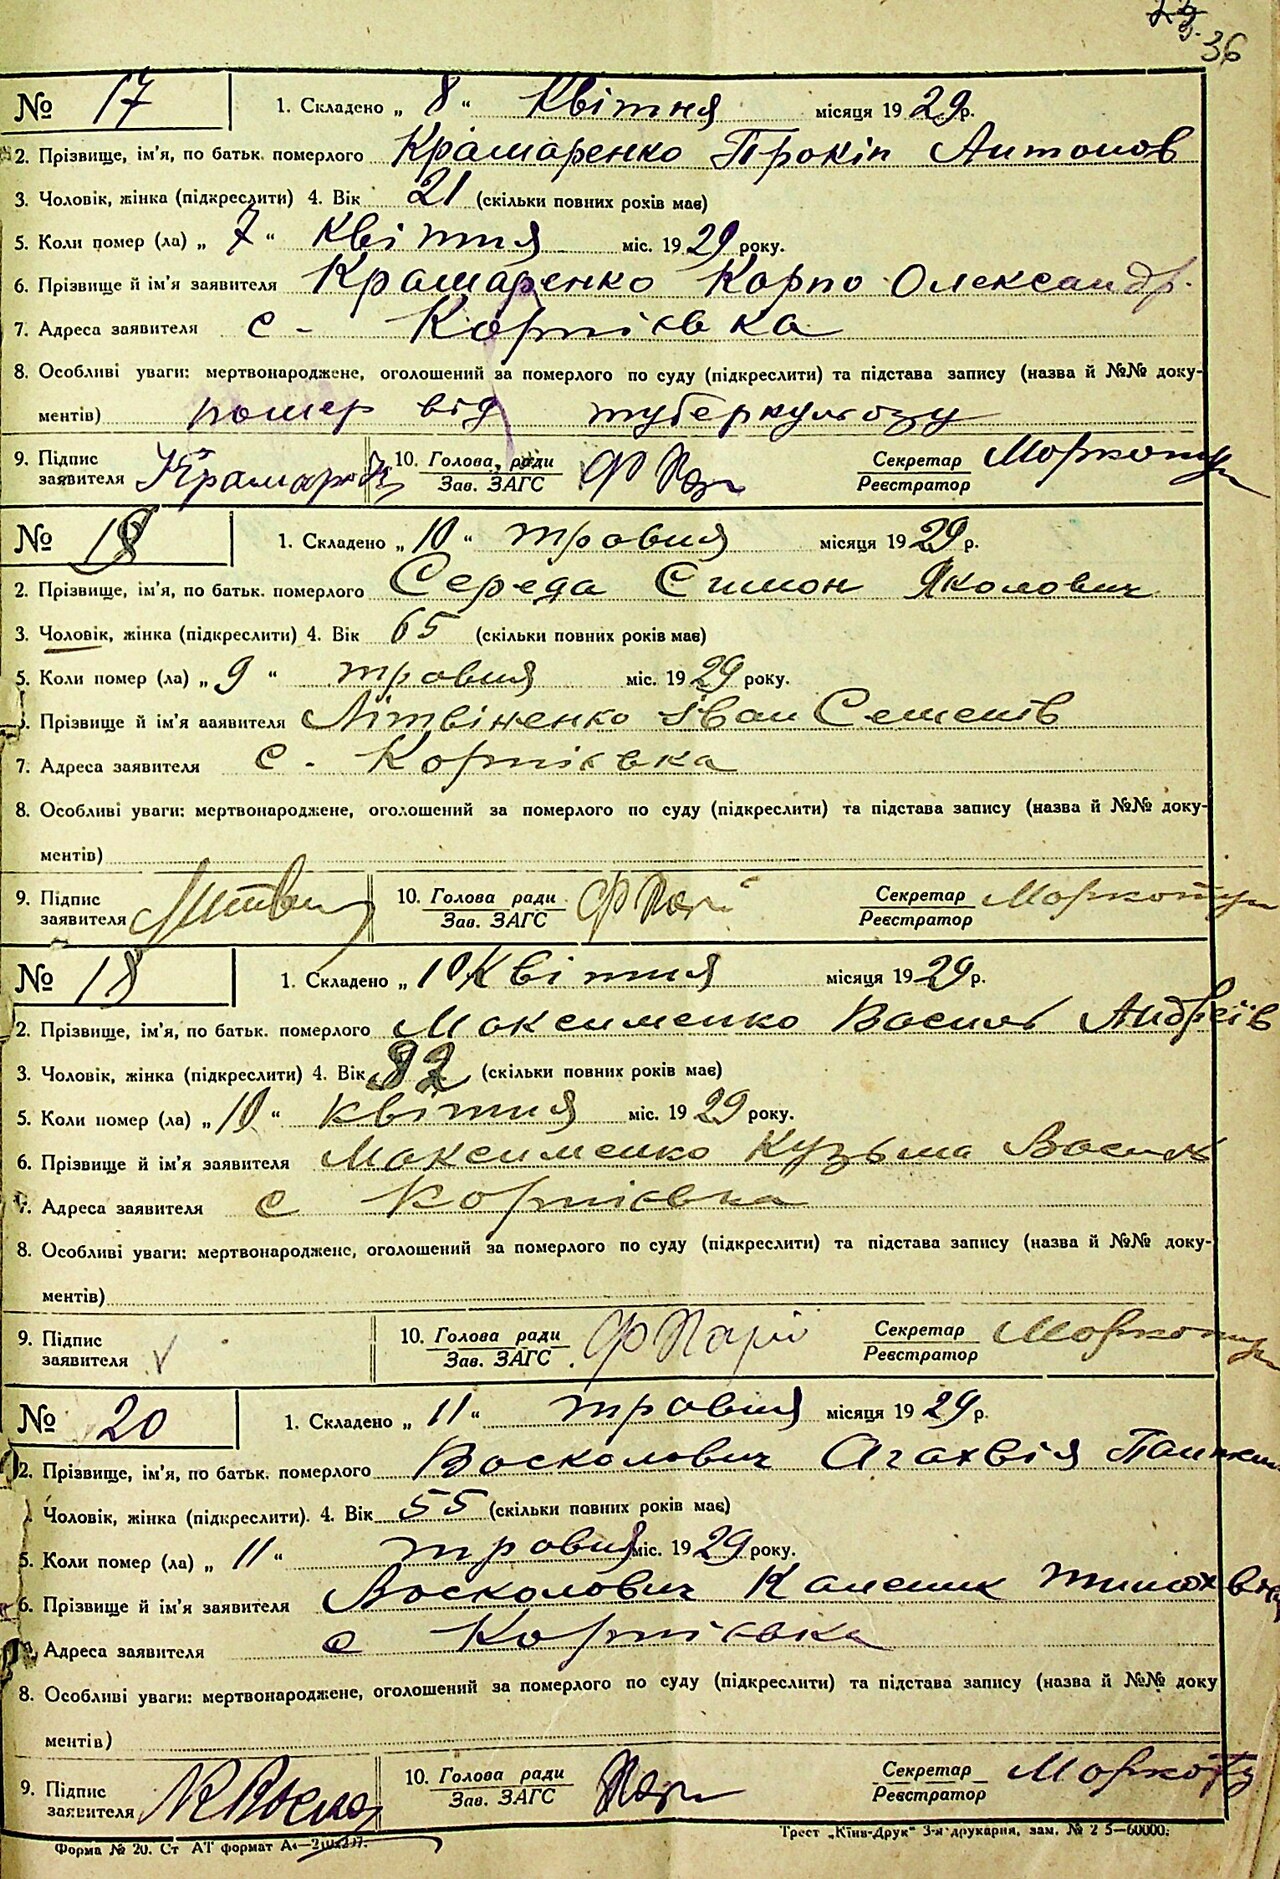 36
№ 17 1. Складено „ 8 “ Квітня місяця 1929р.
2. Прізвище, ім'я, по батьк. померлого Крамаренко Прокіп Антонов
3. Чоловік, жінка (підкреслити) 4. Вік 21 (скільки повних рохів має)
5. Коли помер (ла) „ 7 “ Квітня міс. 1929 року.
6. Прізвище й ім'я заявителя Крамаренко Карпо Олександр.
7. Адреса заявителя с - Корніївка
8. Особливі уваги: мертвонароджене, оголошений за померлого по суду (підкреслити) та підстава запису (назва й №№ доку-
ментів) помер від туберкульозу
9. Підпис 10. Голова ради Секретар
заявителя Зав. ЗАГС Реєстратор
№ 1. Складено „ 10 “ травня місяця 1929 р.
2. Прізвище, ім'я, по батьк. померлого Середа Симон Яколович
3. Чоловік, жінка (підкреслити) 4. Вік 65 (скільки повних років має)
5. Коли помер (ла) „ 9 “ травня міс. 1929 року.
Прізвище й ім'я заявителя Літвіненко Іван Семенів
7. Адреса заявителя с. Корніївка
8. Особливі уваги: мертвонароджене, оголошений за померлого по суду (підкреслити) та підстава запису (назва й №№ доку-
ментів)
9. Підпис 10. Голова ради Секретар
заявителя Зав. ЗАГС Реєстратор
№ 18 1. Складено „ 10 Квітня місяця 1929 р.
2. Прізвище, ім'я, по батьк. померлого Максименко Василь Андреїв
3. Чоловік, жінка (підкреслити) 4. Вік 82 (скільки повних років має)
5. Коли помер (ла) „ 10 “ квітня міс. 1929 року.
6. Прізвище й ім'я заявителя Максименко Кузьма Василь
7. Адреса заявителя с Корніївка
8. Особливі уваги: мертвонароджене, оголошений за померлого по суду (підкреслити) та підстава запису (назва й №№ доку-
ментів)
9. Підпис 10. Голова ради Секретар
заявителя Зав. ЗАГС Реєстратор
№ 20 1. Складено „ 11 “ травня місяця 1929 р.
2. Прізвище, ім'я, по батьк. померлого Восколович Агахвія
Чоловік, жінка (підкреслити). 4. Вік 55 (скільки повних років має)
5. Коли помер (ла) „ 11 “ травня міс. 1929 року.
6. Прізвище й ім'я заявителя Восколович Каленик
Адреса заявителя с Корніївка
8. Особливі уваги: мертвонароджене, оголошений за померлого по суду (підкреслити) та підстава запису (назва й №№ доку
ментів)
9. Підпис 10. Голова ради Секретар
заявителя Зав. ЗАГС Реєстратор
Форма № 20. Ст АТ формат А4 Трест „Київ-Друк“ 3-я друкарня, зам. № 2 5—60000.